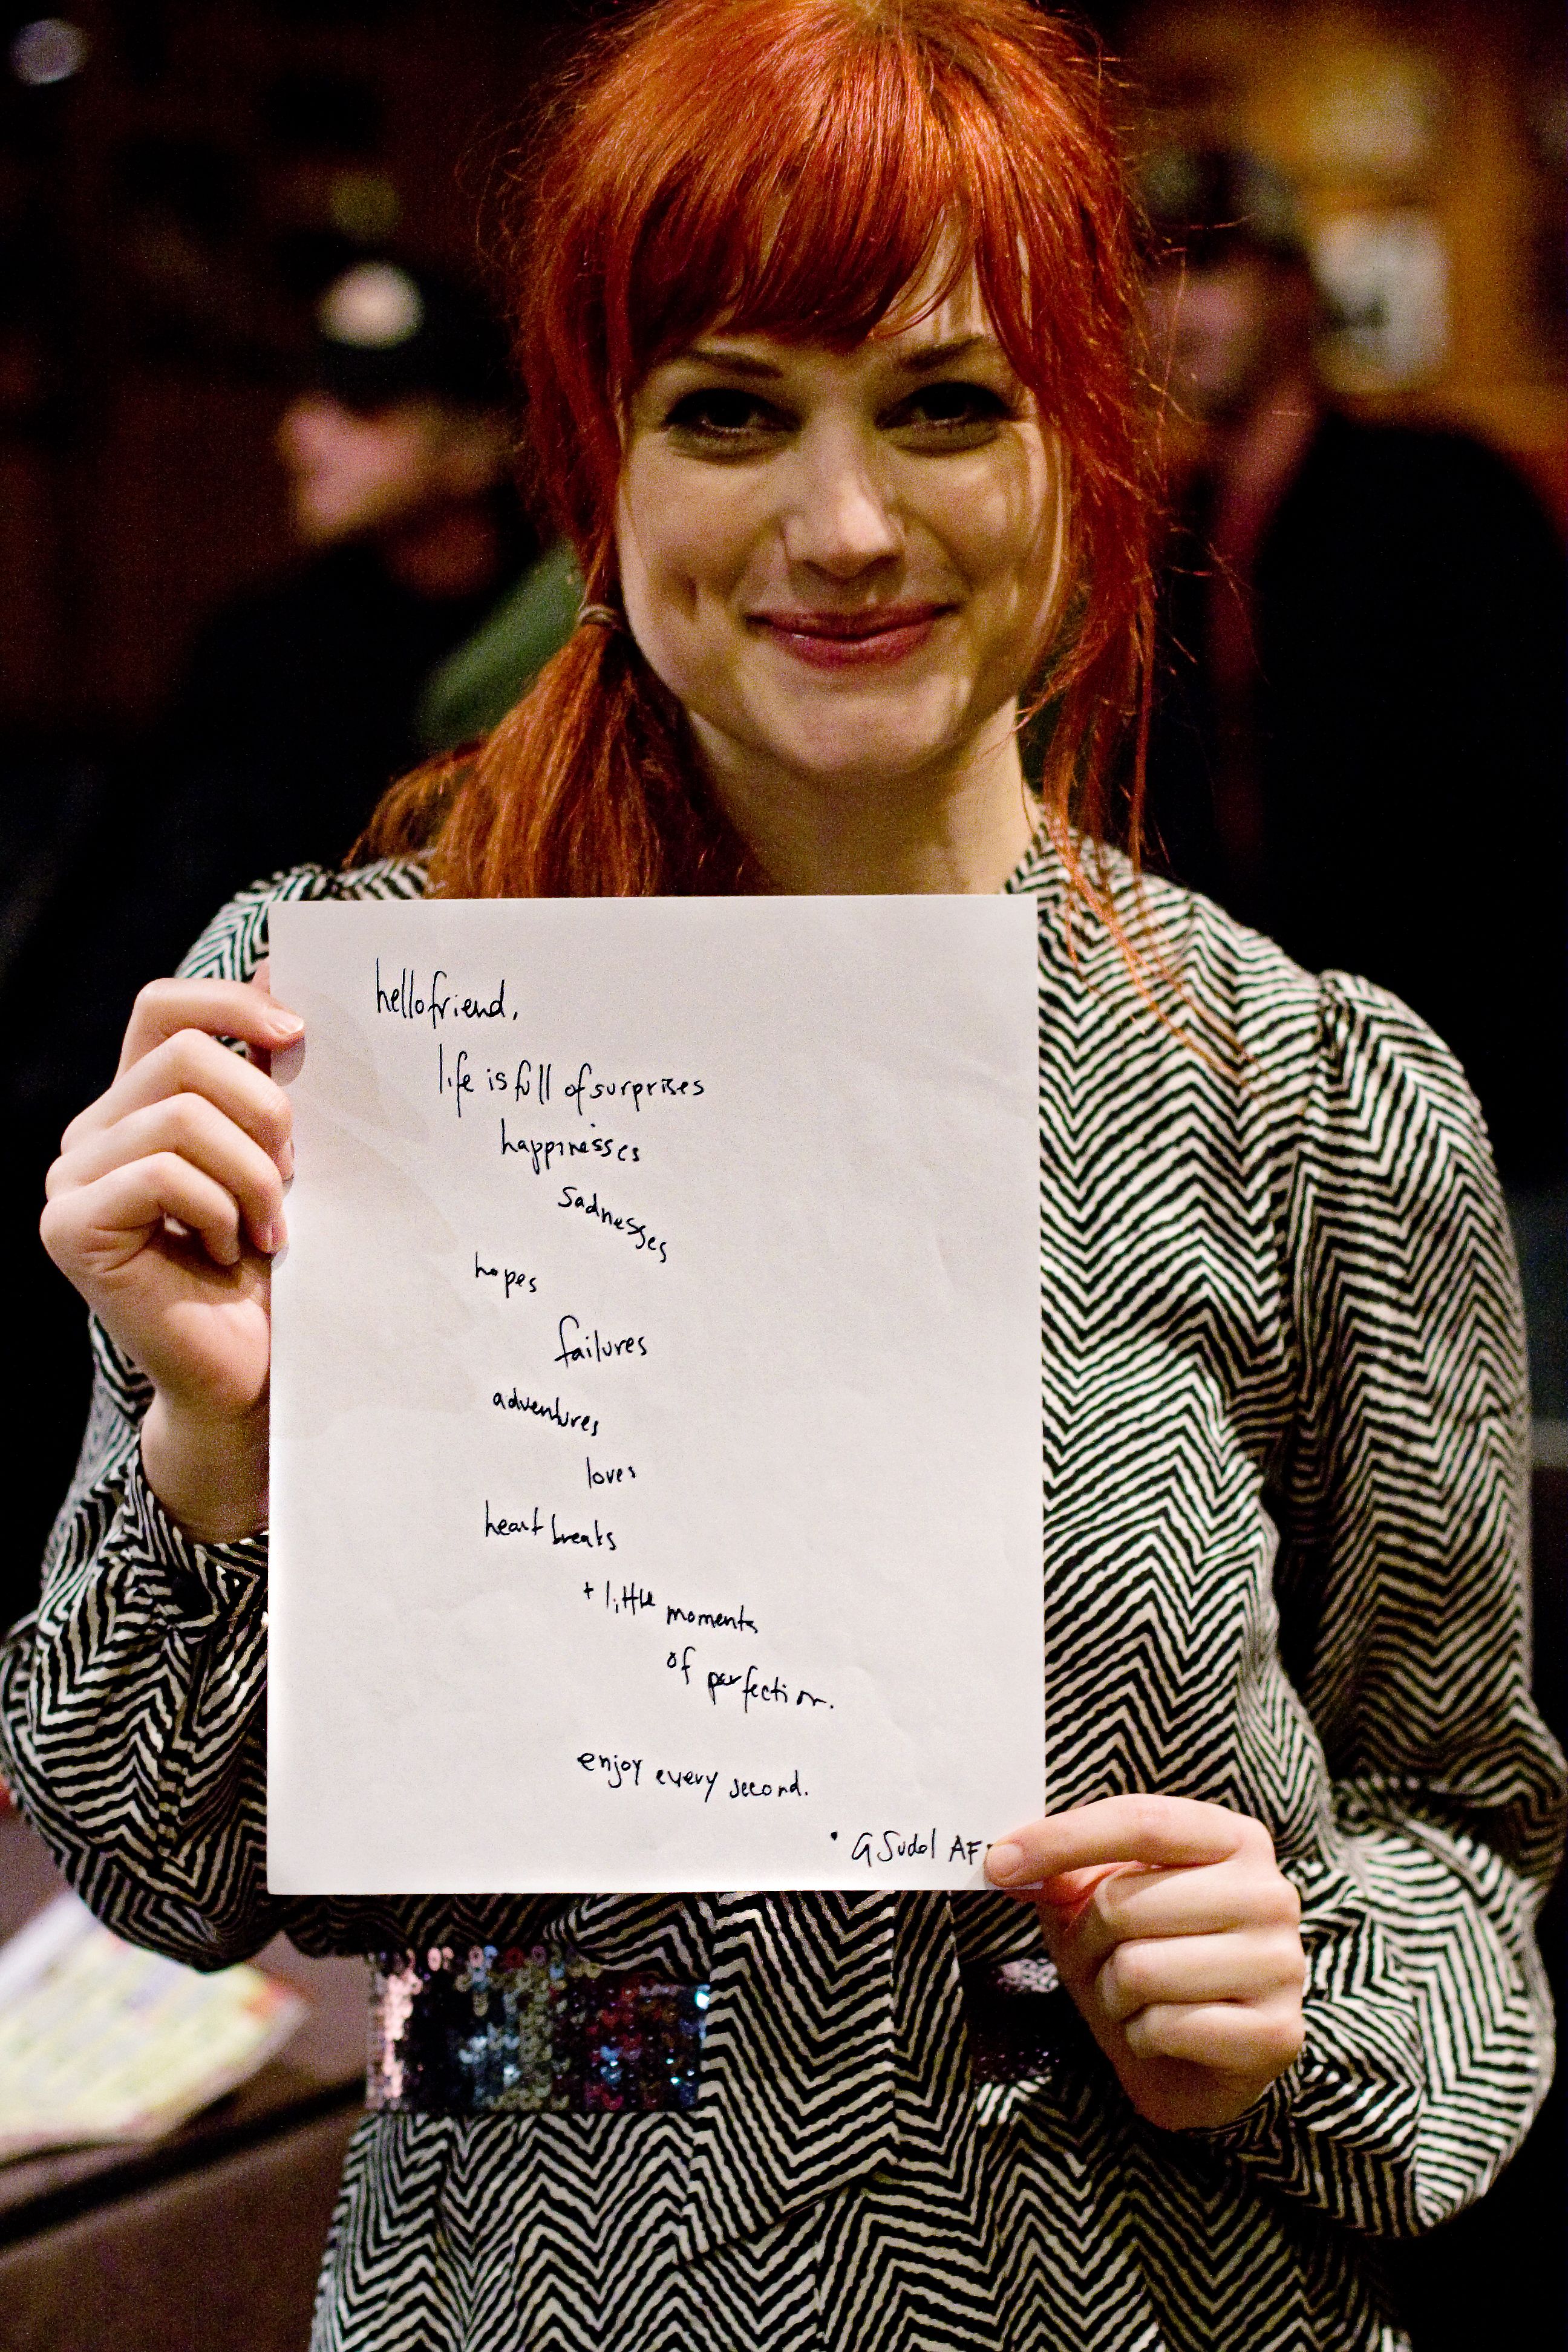 hello friend,
life is full of surprises
happinesses
sadnesses
hopes
failures
adventures
loves
heartbreaks
+ little moments
of perfection.
enjoy every second.
• A Sudol AF